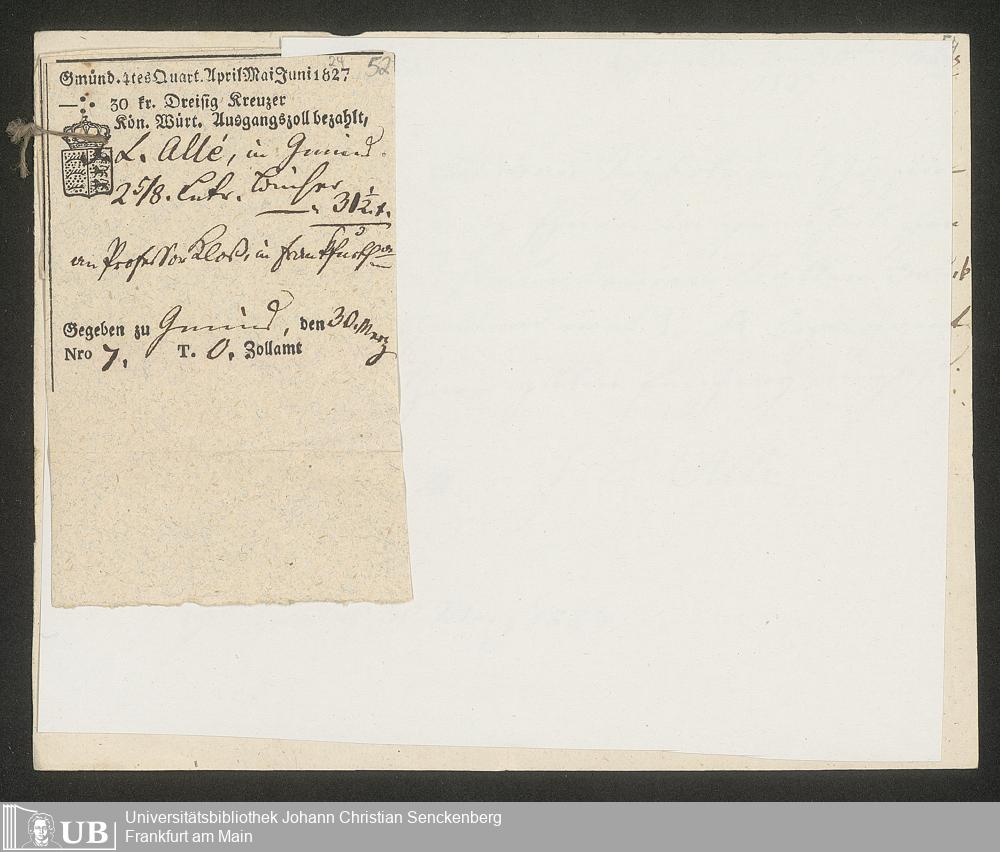 24 52
Gmünd. 4tes Quart. April Mai Juni 1827
— 30 kr. Dreisig Kreuzer
Kön. Würt. Ausgangszoll bezahlt,
L. Allé, in Gmünd.
25/8. Centr. Bücher
— " 31½ x.
an Professor Kloß, in Frankfurth
Gegeben zu Gmünd, den 30. Merz
Nro 7. T. 0. Zollamt
UB
Universitätsbibliothek Johann Christian Senckenberg
Frankfurt am Main